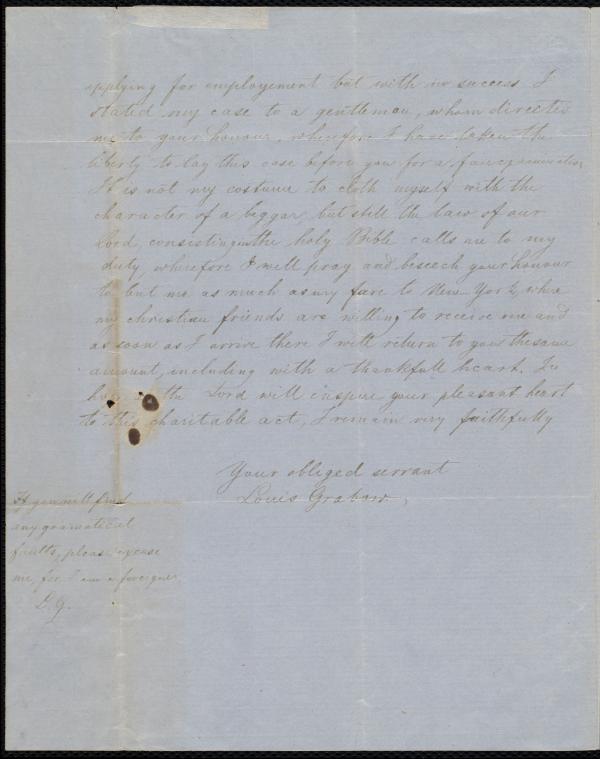 applying for employement but with no success I
stated my case to a gentleman, whom directes
me to your honour, wherefore I have taken the
liberty to lay this case before you for a
It is not my costume to cloth myself with the
character of a beggar, but still the law of our
Lord, consisting in the holy Bible calls me to my
duty, wherefore I will pray and beseech your honour
to but me as much as my fare to New-York, where
my christian friends are willing to receive me and
as soon as I arrive there I will return to you the same
amount, including with a thankfull heart. In
the Lord will inspire your pleasant heart
to this charitable act, I remain very faithfully
Your obliged servant
Louis Grabow,
If you will find
any gramatical
faults, please excuse
me, for I am a foreigner.
L. G.